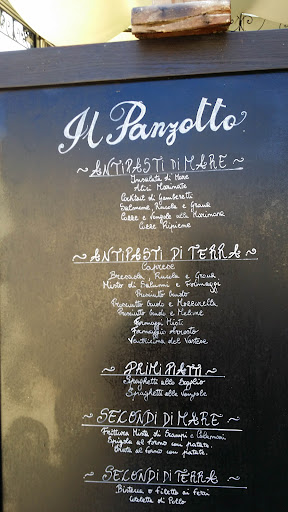 Il Panzotto
~ ANTIPASTI DI MARE ~
Insalata di Mare
Alici Marinate
Cocktail di Gamberetti
Salmone, Rucola e Grana
Cozze e Vongole alla Marinara
Cozze Ripiene
~ ANTIPASTI DI TERRA ~
Caprese
Bresaola, Rucola e Grana
Misto di Salumi e Formaggi
Prosciutto Crudo
Prosciutto Crudo e Mozzarella
Prosciutto Crudo e Melone
Formaggi Misti
Formaggio Arrosto
del Vastese
~ PRIMI PIATTI ~
Spaghetti allo Scoglio
Spaghetti alle Vongole
~ SECONDI DI MARE ~
Frittura Mista di Scampi e Calamari
Spigola al forno con patate
Orata al forno con patate.
~ SECONDI DI TERRA ~
Bistecca o filetto ai ferri
Cotoletta di Pollo